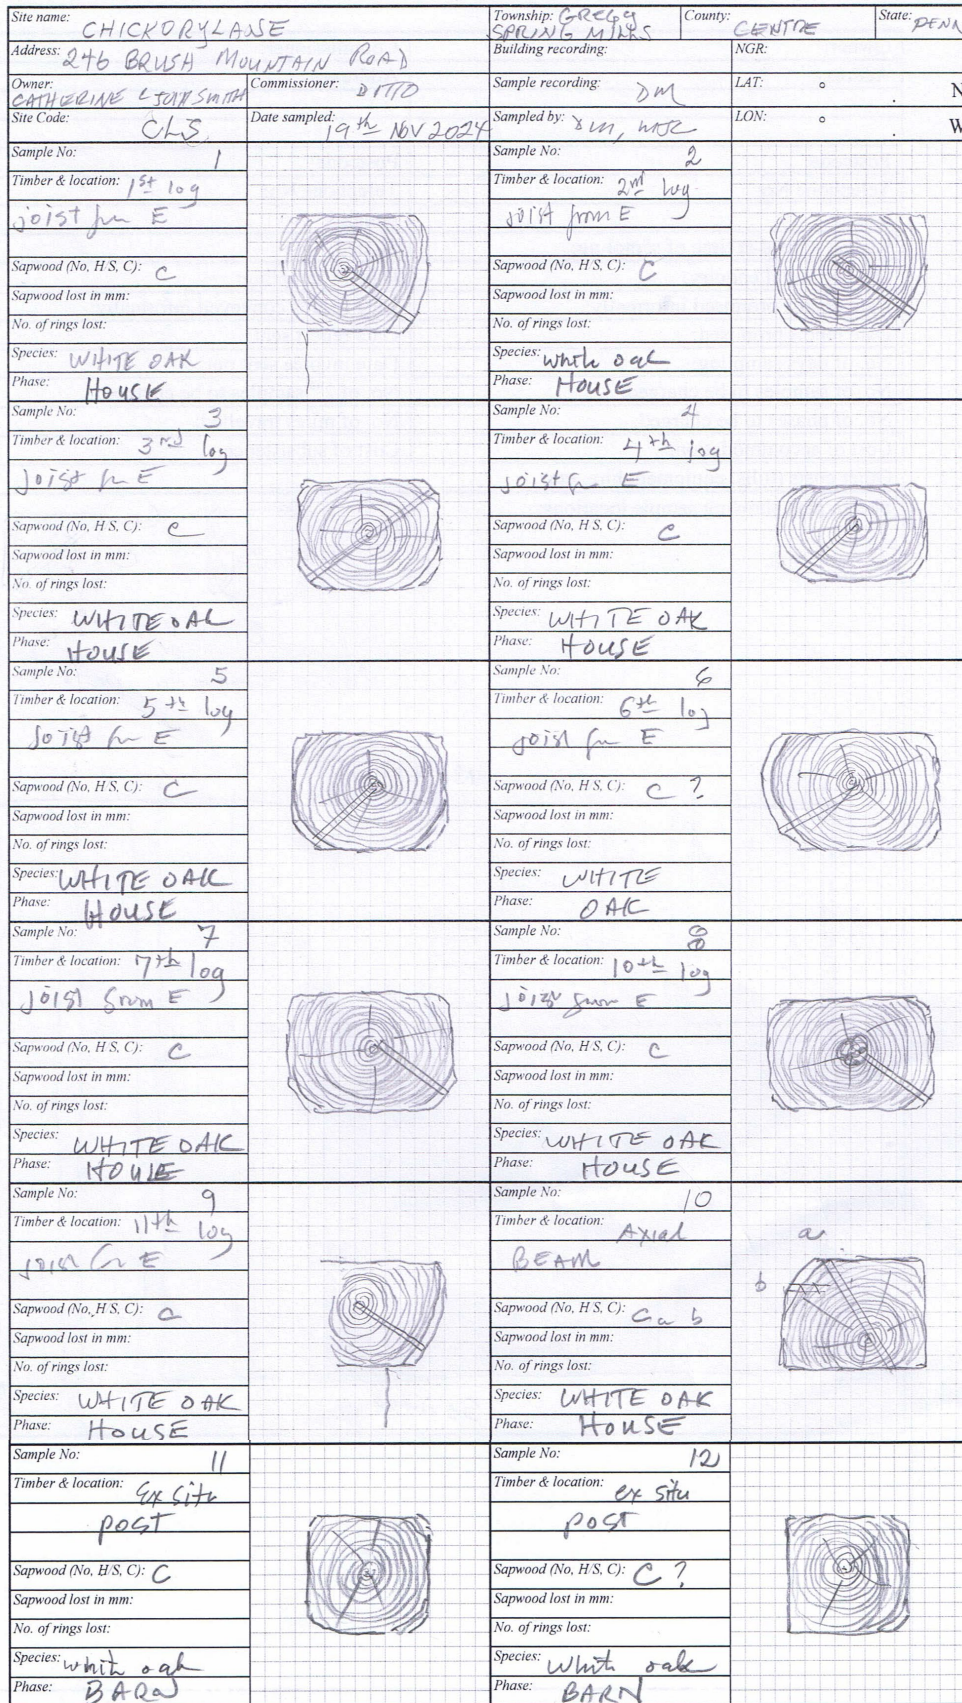 Site name: CHICKORYLANE
Township: GREGG
SPRING MILLS
County: CENTRE
State: PENN
Address: 246 BRUSH MOUNTAIN ROAD
Building recording:
NGR:
Owner: CATHERINE & JOHN SMITH
Commissioner: DITTO
Sample recording: DM
LAT: ° . N
Site Code: CLS
Date sampled: 19th NOV 2024
Sampled by: DM,
LON: ° . W
Sample No: 1
Timber & location: 1st log
joist fm E
Sapwood (No, H/S, C): C
Sapwood lost in mm:
No. of rings lost:
Species: WHITE OAK
Phase: HOUSE
Sample No: 2
Timber & location: 2nd log
joist from E
Sapwood (No, H/S, C): C
Sapwood lost in mm:
No. of rings lost:
Species: white oak
Phase: HOUSE
Sample No: 3
Timber & location: 3rd log
joist fm E
Sapwood (No, H S, C): C
Sapwood lost in mm:
No. of rings lost:
Species: WHITE OAK
Phase: HOUSE
Sample No: 4
Timber & location: 4th log
joist fm E
Sapwood (No, H S, C): C
Sapwood lost in mm:
No. of rings lost:
Species: WHITE OAK
Phase: HOUSE
Sample No: 5
Timber & location: 5th log
joist fm E
Sapwood (No, H S, C): C
Sapwood lost in mm:
No. of rings lost:
Species: WHITE OAK
Phase: HOUSE
Sample No: 6
Timber & location: 6th log
joist fm E
Sapwood (No, H S, C): C ?
Sapwood lost in mm:
No. of rings lost:
Species: WHITE
Phase: OAK
Sample No: 7
Timber & location: 7th log
joist from E
Sapwood (No, H S, C): C
Sapwood lost in mm:
No. of rings lost:
Species: WHITE OAK
Phase: HOUSE
Sample No: 8
Timber & location: 10th log
joist from E
Sapwood (No, H S, C): C
Sapwood lost in mm:
No. of rings lost:
Species: WHITE OAK
Phase: HOUSE
Sample No: 9
Timber & location: 11th log
joist fm E
Sapwood (No, H S, C): C
Sapwood lost in mm:
No. of rings lost:
Species: WHITE OAK
Phase: HOUSE
Sample No: 10
Timber & location: Axial
BEAM
Sapwood (No, H S, C): C a b
Sapwood lost in mm:
No. of rings lost:
Species: WHITE OAK
Phase: HOUSE
a
b
Sample No: 11
Timber & location: Ex situ
POST
Sapwood (No, H/S, C): C
Sapwood lost in mm:
No. of rings lost:
Species: white oak
Phase: BARN
Sample No: 12
Timber & location: ex situ
POST
Sapwood (No, H/S, C): C ?
Sapwood lost in mm:
No. of rings lost:
Species: White oak
Phase: BARN